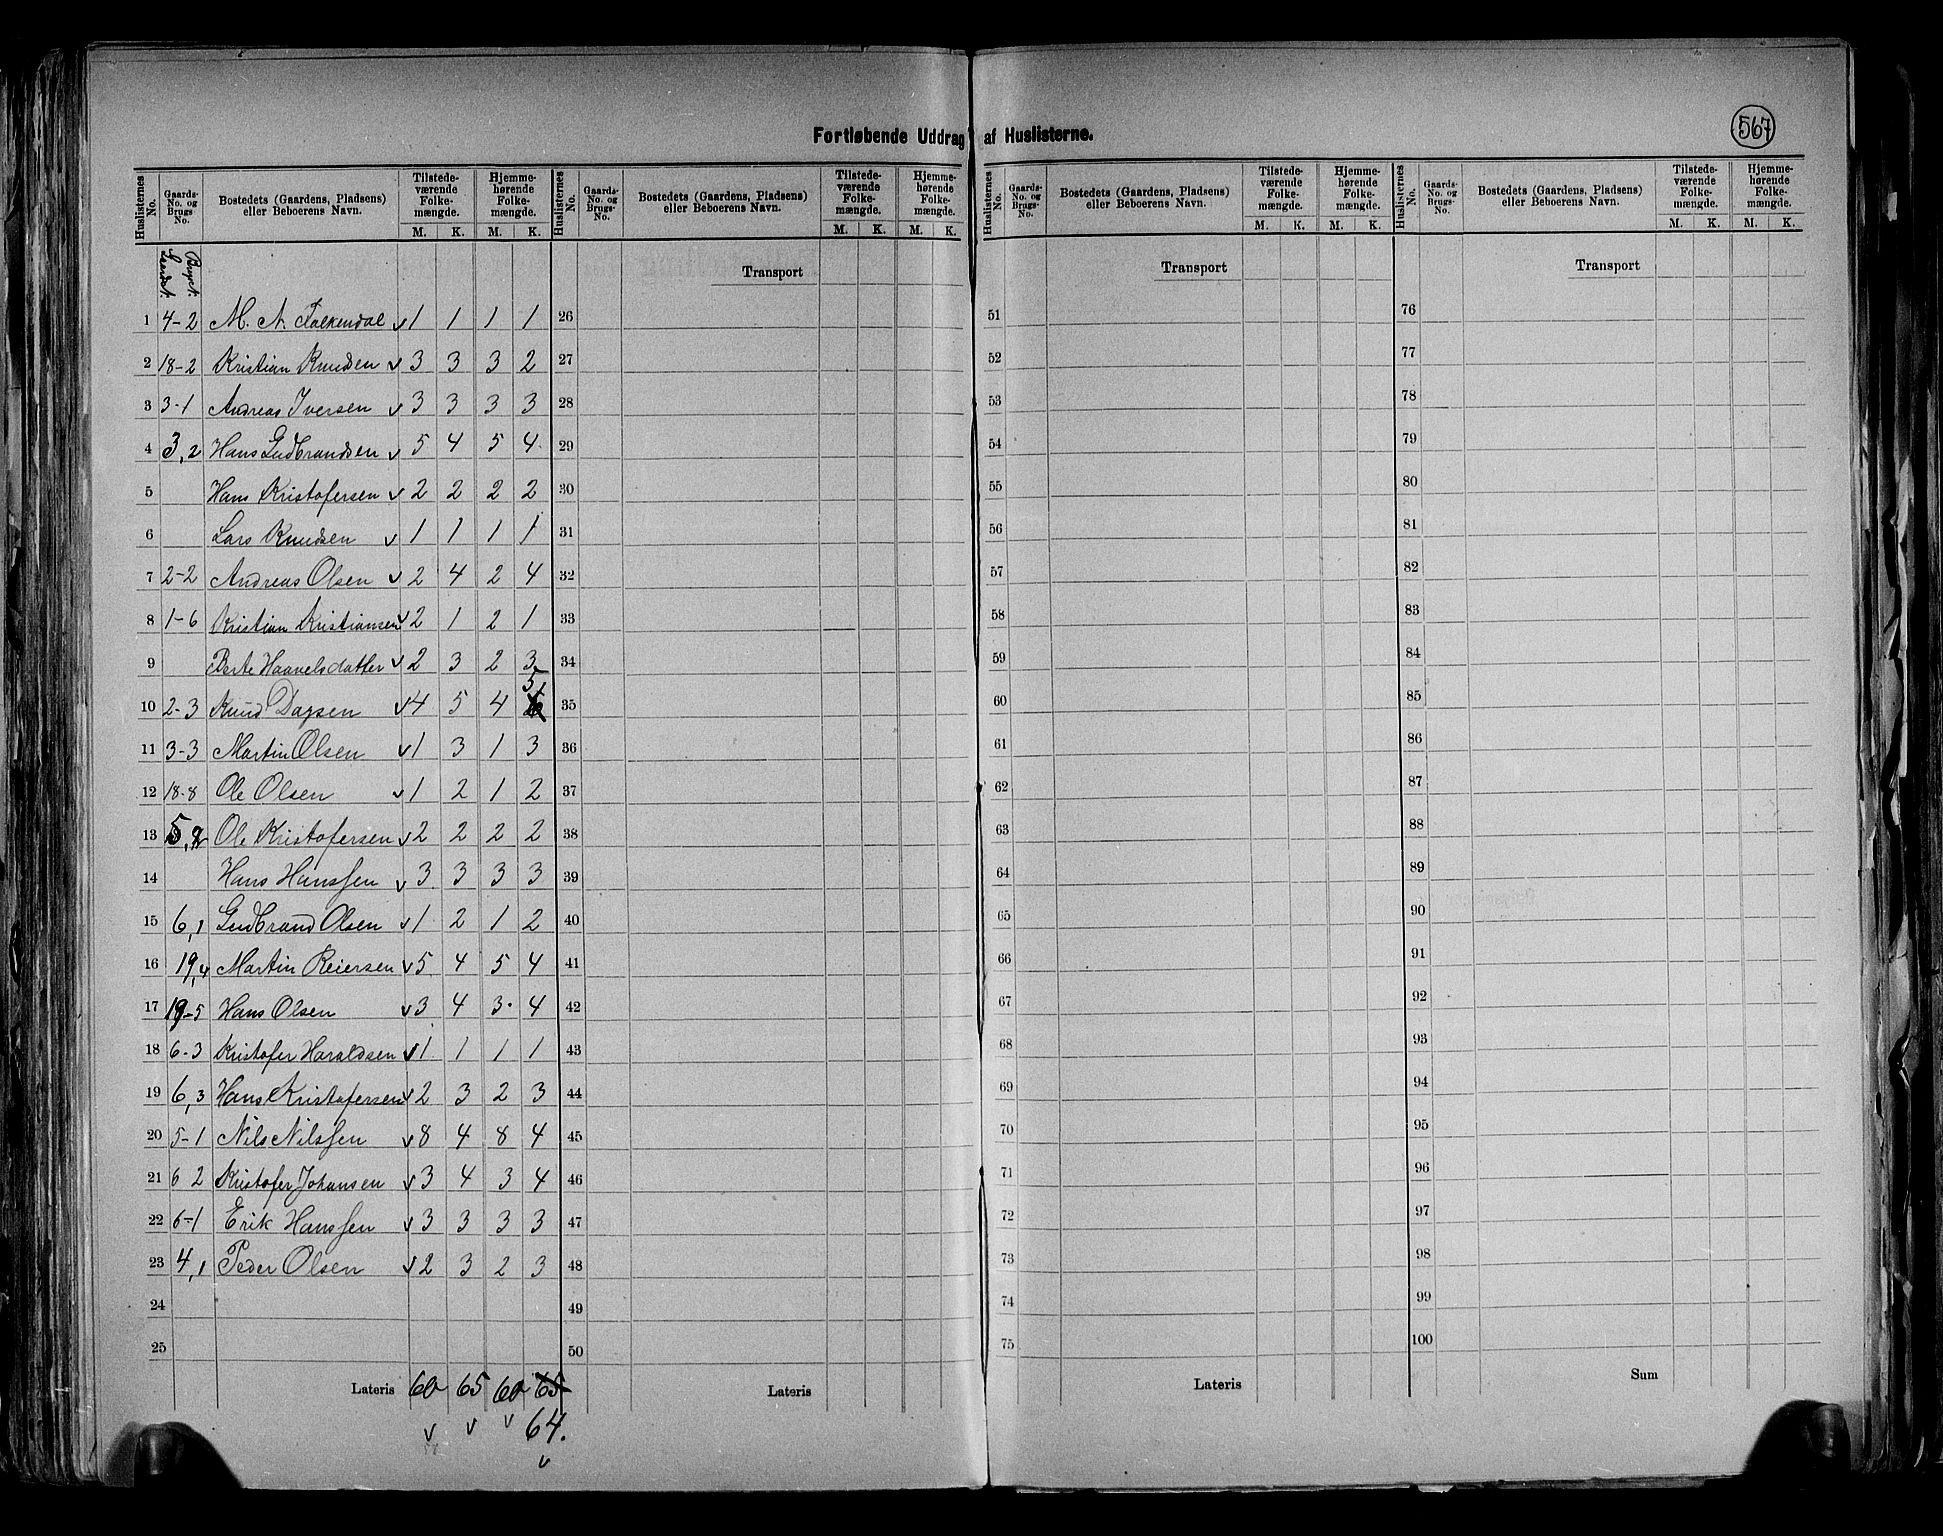 567
Fortløbende Uddrag af Huslisterne.
Huslisternes No. | Gaards-No. og Brugs-No. | Bostedets (Gaardens, Pladsens) eller Beboerens Navn. | Tilstede-værende Folke-mængde. M. K. | Hjemme-hørende Folke-mængde. M. K. | Huslisternes No. | Gaards-No. og Brugs-No. | Bostedets (Gaardens, Pladsens) eller Beboerens Navn. | Tilstede-værende Folke-mængde. M. K. | Hjemme-hørende Folke-mængde. M. K. | Huslisternes No. | Gaards-No. og Brugs-No. | Bostedets (Gaardens, Pladsens) eller Beboerens Navn. | Tilstede-værende Folke-mængde. M. K. | Hjemme-hørende Folke-mængde. M. K. | Huslisternes No. | Gaards-No. og Brugs-No. | Bostedets (Gaardens, Pladsens) eller Beboerens Navn. | Tilstede-værende Folke-mængde. M. K. | Hjemme-hørende Folke-mængde. M. K.
Transport Transport Transport
1 4-2 M. N. Falkendal v 1 1 1 1 26 51 76
2 18-2 Kristian Knudsen v 3 3 3 2 27 52 77
3 3-1 Andreas Iversen v 3 3 3 3 28 53 78
4 3,2 Hans Gudbrandsen v 5 4 5 4 29 54 79
5 Hans Kristofersen v 2 2 2 2 30 55 80
6 Lars Knudsen v 1 1 1 1 31 56 81
7 2-2 Andreas Olsen v 2 4 2 4 32 57 82
8 1-6 Kristian Kristiansen v 2 1 2 1 33 58 83
9 Berte Haavelsdatter v 2 3 2 3 34 59 84
10 2-3 Knud Dagsen v 4 5 4 5 35 60 85
11 3-3 Martin Olsen v 1 3 1 3 36 61 86
12 18-8 Ole Olsen v 1 2 1 2 37 62 87
13 5,2 Ole Kristofersen v 2 2 2 2 38 63 88
14 Hans Hanssen v 3 3 3 3 39 64 89
15 6,1 Gudbrand Olsen v 1 2 1 2 40 65 90
16 19,4 Martin Reiersen v 5 4 5 4 41 66 91
17 19-5 Hans Olsen v 3 4 3 4 42 67 92
18 6-3 Kristofer Haraldsen v 1 1 1 1 43 68 93
19 6,3 Hans Kristofersen v 2 3 2 3 44 69 94
20 5-1 Nils Nilssen v 8 4 8 4 45 70 95
21 6 2 Kristofer Johansen v 3 4 3 4 46 71 96
22 6-1 Erik Hanssen v 3 3 3 3 47 72 97
23 4,1 Peder Olsen v 2 3 2 3 48 73 98
24 49 74 99
25 50 75 100
Lateris 60 65 60 65 Lateris Lateris Sum
v v v 64.
v